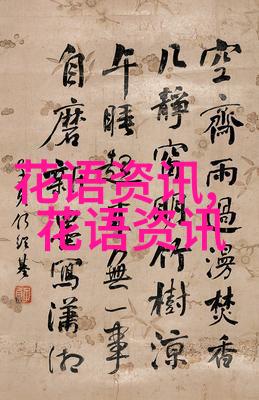 空齋雨過漫焚香
几靜窗明竹樹涼
午睡起來無一事
自磨新墨寫瀟湘
花语资讯,
花语资讯